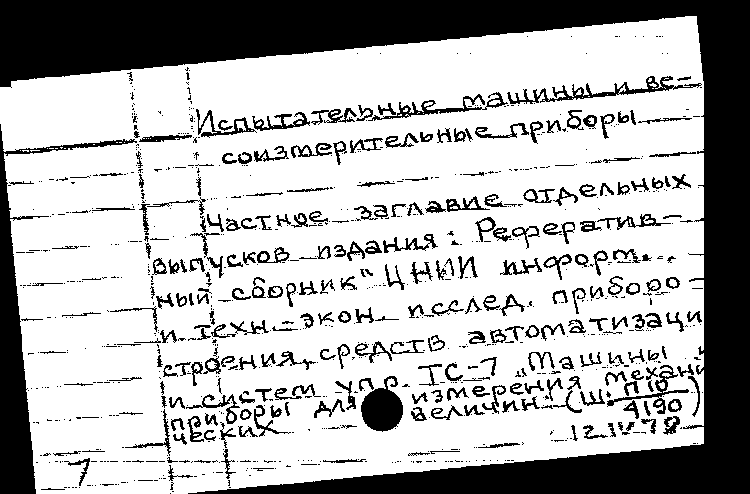 Испытательные машины и ве-
соизмерительные приборы
Частное заглавие отдельных
выпусков издания: Рефератив-
ный сборник" ЦНИИ информ...
и техн.-экон. исслед. приборо-
строения, средств автоматизаци
и систем упр. ТС-7 „Машины и
приборы для измерения механи
ческих величин. (Ш: П10
4190)
12.IV 78
7